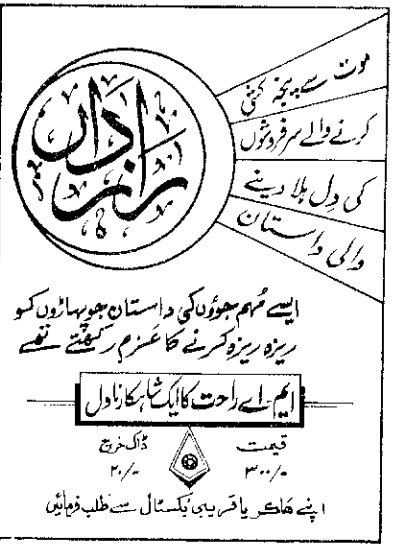 رازدار
موت سے پنجہ کشی
کرنے والے سرفروشوں
کی دل ہلا دینے
والی داستان
ایسے مُہم جوؤں کی داستان جو پہاڑوں کو
ریزہ ریزہ کرنے کا عزم رکھتے تھے
ایم۔اے راحت کا ایک شاہکار ناول
قیمت
۳۰۰/-
ڈاک خرچ
۲۰/-
اپنے ھاکر یا قریبی بُکسٹال سے طلب فرمائیں